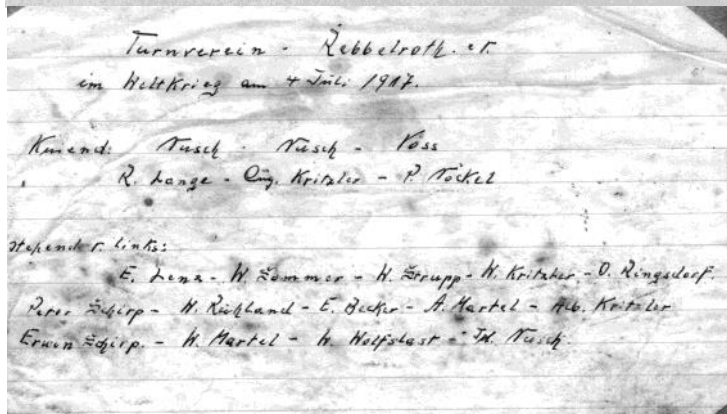 Turnverein - Rebbelroth. e.V.
im Weltkrieg am 4 Juli 1917.
Kniend: Nusch - Nusch - Voss
R. Lange - Aug. Kritzler - P. Nöckel
Stehend v. links:
E. Lenz - W. Sommer - H. Strupp - W. Kritzler - O. Ringsdorf.
Peter Schirp - W. Richland - E. Becker - A. Martel - Alb. Kritzler
Erwin Schirp. - W. Martel - W. Wolfslast - Nusch.